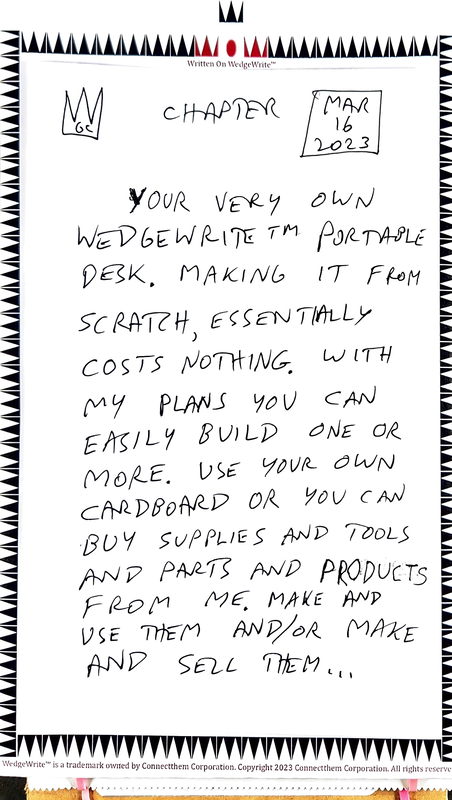 Written On WedgeWrite™
GC
CHAPTER
MAR
16
2023
YOUR VERY OWN
WEDGEWRITE TM PORTABLE
DESK. MAKING IT FROM
SCRATCH, ESSENTIALLY
COSTS NOTHING. WITH
MY PLANS YOU CAN
EASILY BUILD ONE OR
MORE. USE YOUR OWN
CARDBOARD OR YOU CAN
BUY SUPPLIES AND TOOLS
AND PARTS AND PRODUCTS
FROM ME. MAKE AND
USE THEM AND/OR MAKE
AND SELL THEM...
WedgeWrite™ is a trademark owned by Connectthem Corporation. Copyright 2023 Connectthem Corporation. All rights reserve